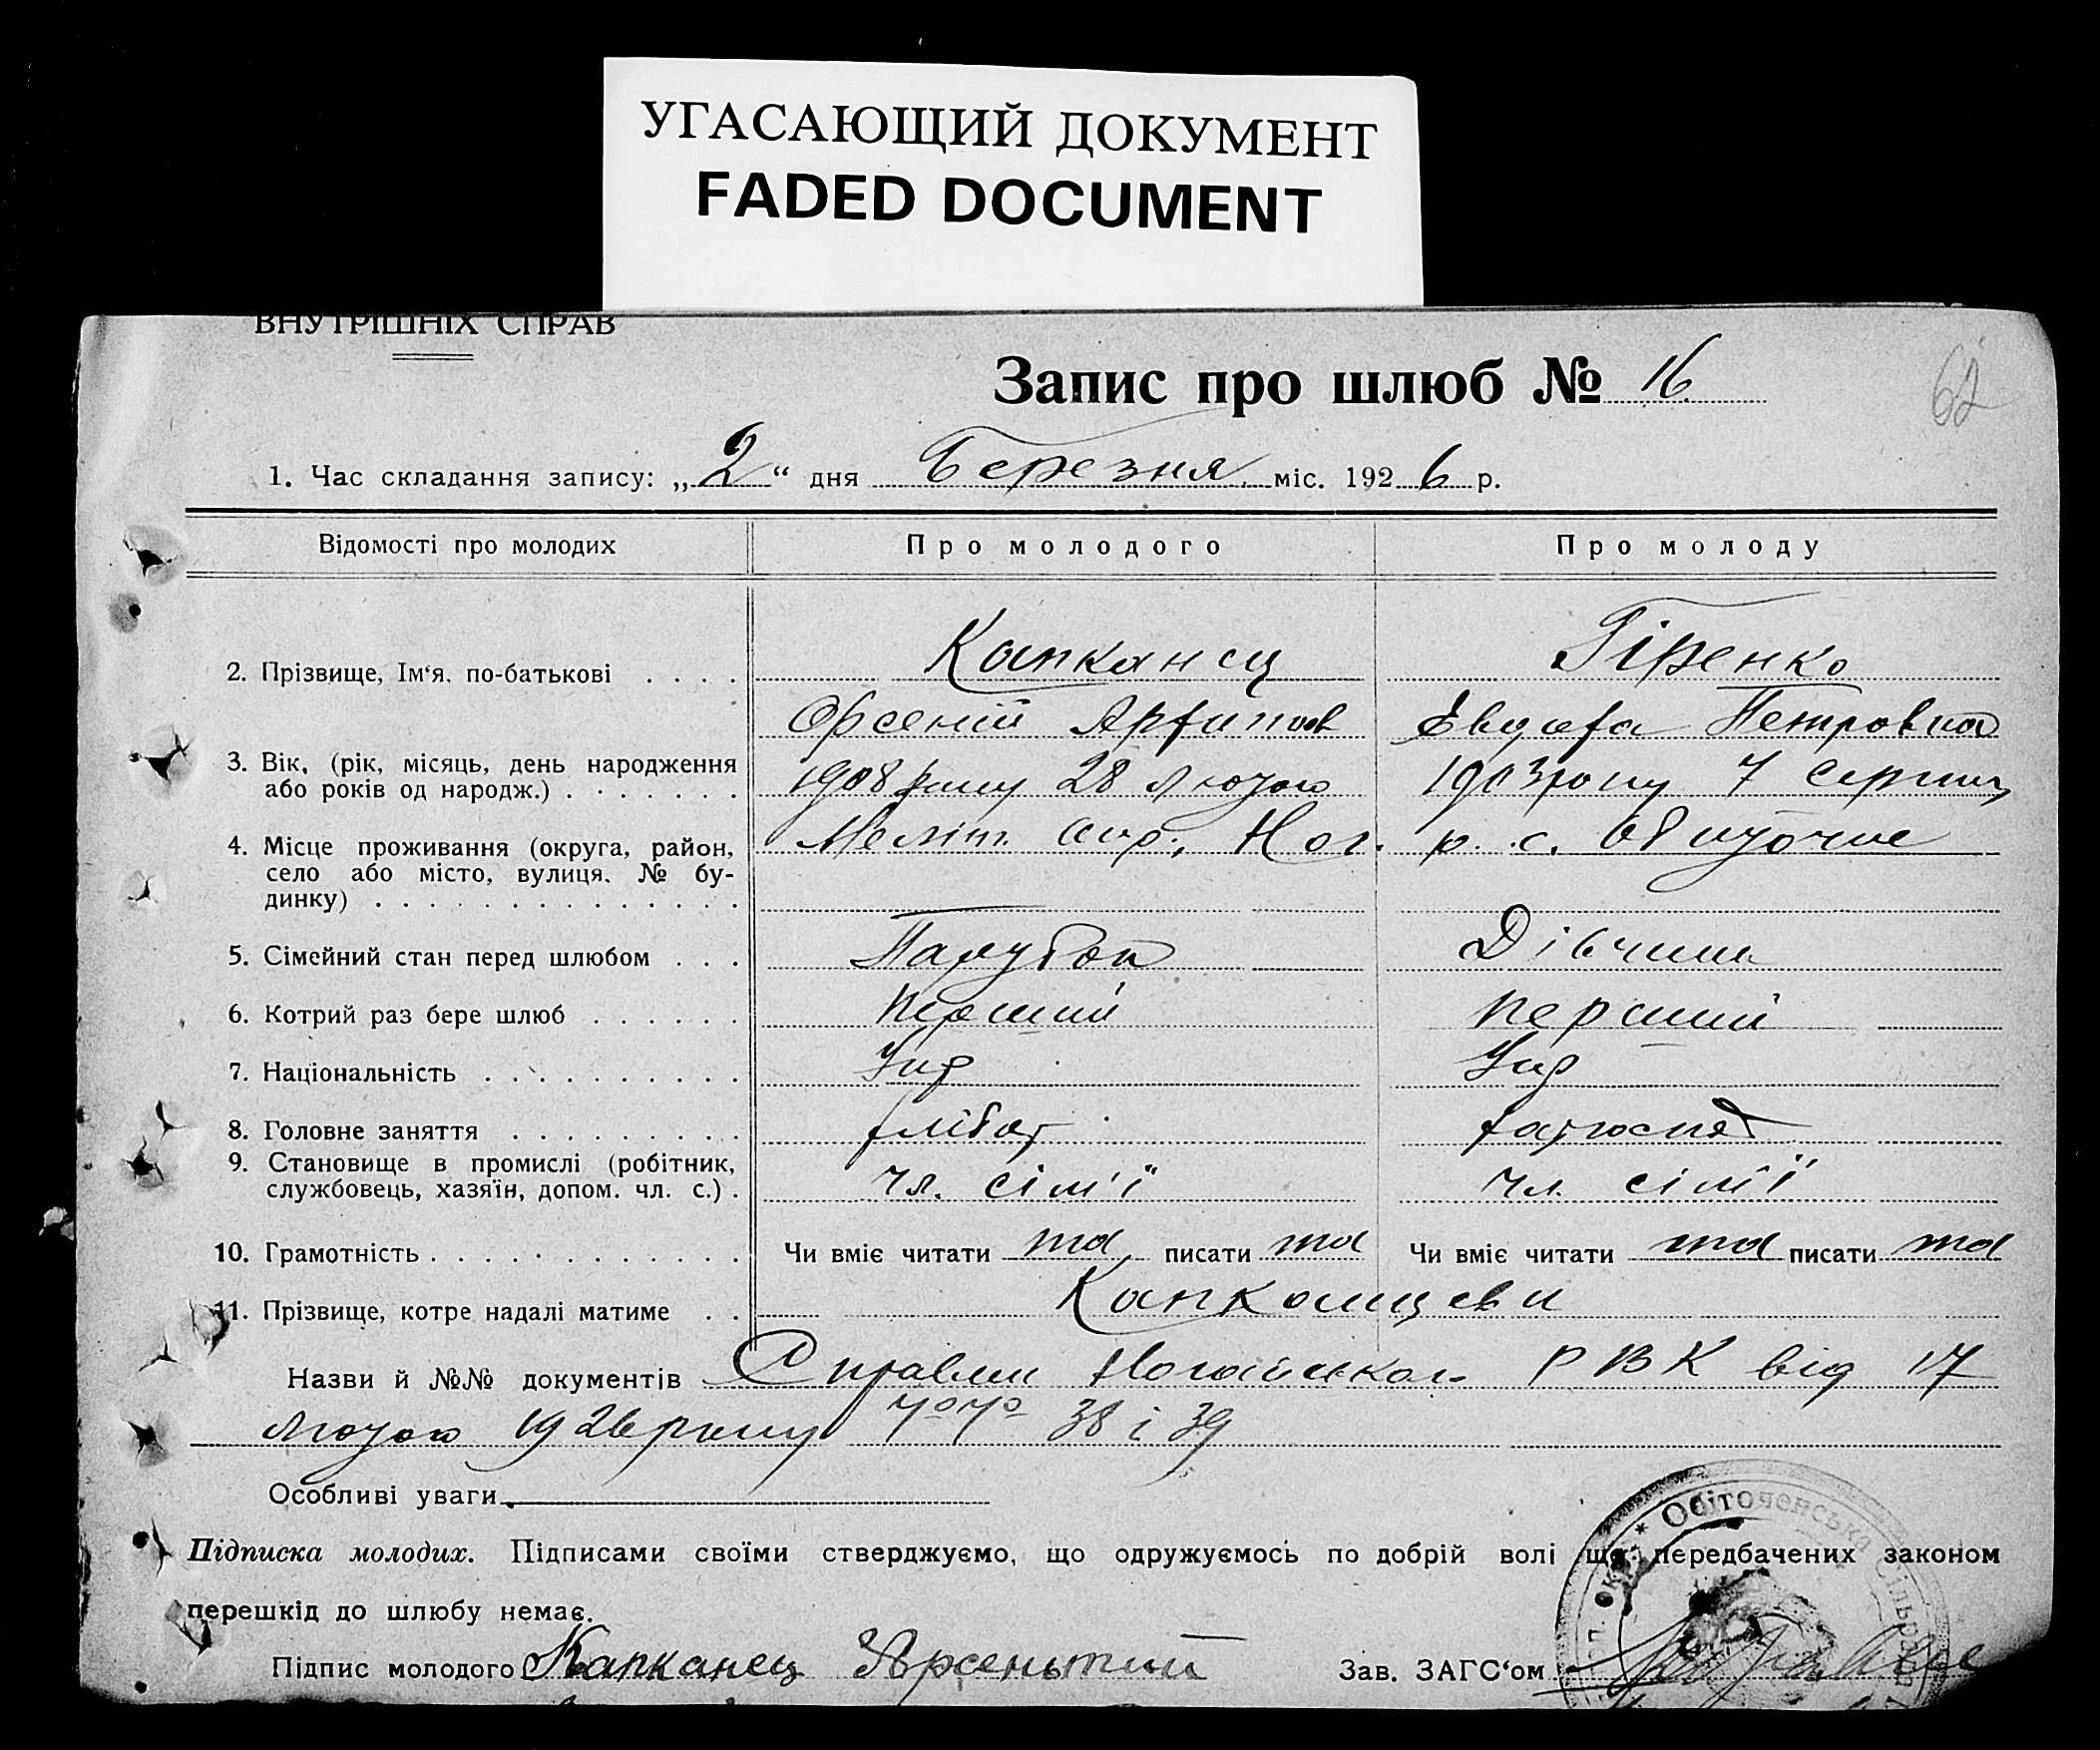 УГАСАЮЩИЙ ДОКУМЕНТ
FADED DOCUMENT
ВНУТРІШНІХ СПРАВ
Запис про шлюб № 16
62
1. Час складання запису: „2“ дня Березня міс. 1926 р.
Відомості про молодих Про молодого Про молоду
2. Прізвище, Ім‘я. по-батькові . . . . Капканец Гіренко
Орсеній Архипов Евдоха Петровна
3. Вік, (рік, місяць, день народження
або років од народж.) . . . . . . . 1908 року 28 лютого 1903 року 7 серпня
4. Місце проживання (округа, район,
село або місто, вулиця. № бу-
динку) . . . . . . . . . . . . . . Меліт. окр., Ног. р. с. Обиточне
5. Сімейний стан перед шлюбом . . . Парубок Дівчина
6. Котрий раз бере шлюб . . . . . . Перший Перший
7. Національність . . . . . . . . . . Укр Укр
8. Головне заняття . . . . . . . . . хлібор
9. Становище в промислі (робітник,
службовець, хазяїн, допом. чл. с.) . чл. сім'ї чл. сім'ї
10. Грамотність . . . . . . . . . . . . Чи вміє читати та, писати та Чи вміє читати та писати та
11. Прізвище, котре надалі матиме . . Капканцеви
Назви й №№ документів Справки Ногайськог. РВК від 17
лютого 1926 року 38 і 39
Особливі уваги
Підписка молодих. Підписами своїми стверджуємо, що одружуємось по добрій волі що передбачених законом
перешкід до шлюбу немає.
Підпис молодого Капканец Арсентий Зав. ЗАГС‘ом
Обіточенська Сільрада